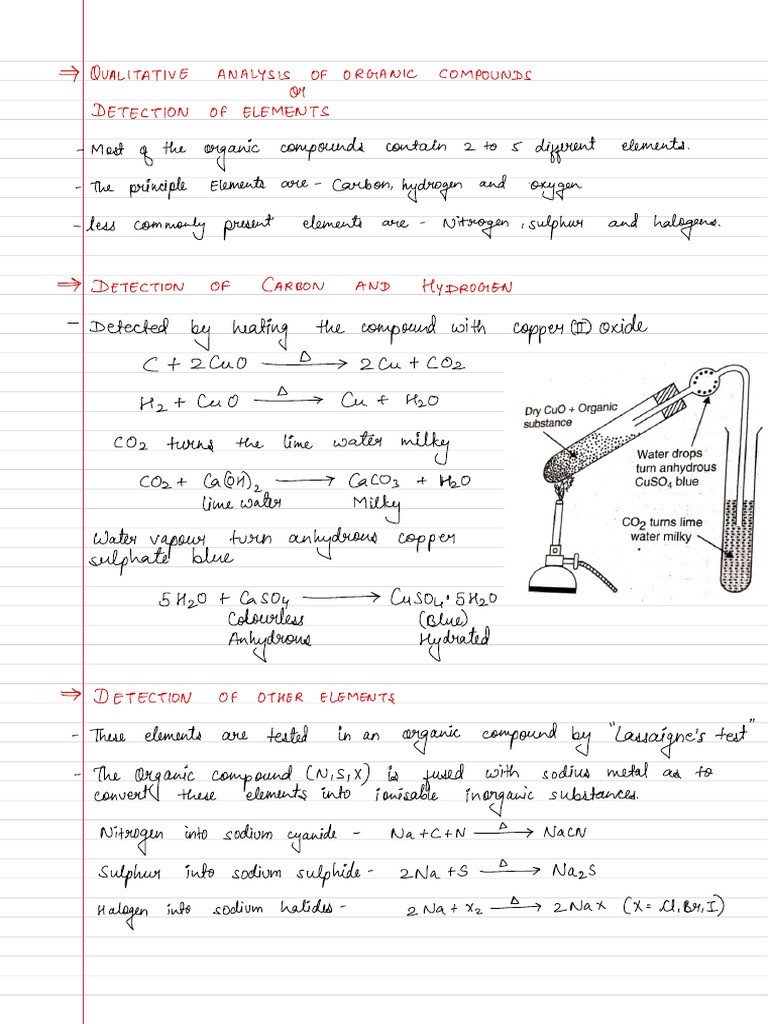 ⇒ QUALITATIVE ANALYSIS OF ORGANIC COMPOUNDS
or
DETECTION OF ELEMENTS
- Most of the organic compounds contain 2 to 5 different elements.
- The principle Elements are - Carbon, hydrogen and oxygen
- less commonly present elements are - Nitrogen, sulphur and halogens.
⇒ DETECTION OF CARBON AND HYDROGEN
- Detected by heating the compound with copper (II) Oxide
C + 2CuO —Δ→ 2Cu + CO2
H2 + CuO —Δ→ Cu + H2O
CO2 turns the lime water milky
CO2 + Ca(OH)2 ⟶ CaCO3 + H2O
lime water Milky
Water vapour turn anhydrous copper
sulphate blue
5H2O + CaSO4 ⟶ CuSO4·5H2O
Colourless (Blue)
Anhydrous Hydrated
Dry CuO + Organic
substance
Water drops
turn anhydrous
CuSO4 blue
CO2 turns lime
water milky
⇒ DETECTION OF OTHER ELEMENTS
- These elements are tested in an organic compound by "Lassaigne's test"
- The Organic compound (N,S,X) is fused with sodius metal as to
convert these elements into ionisable inorganic substances.
Nitrogen into sodium cyanide - Na + C + N —Δ→ NaCN
Sulphur into sodium sulphide - 2Na + S —Δ→ Na2S
Halogen into sodium halides - 2Na + X2 —Δ→ 2NaX (X = Cl, Br, I)